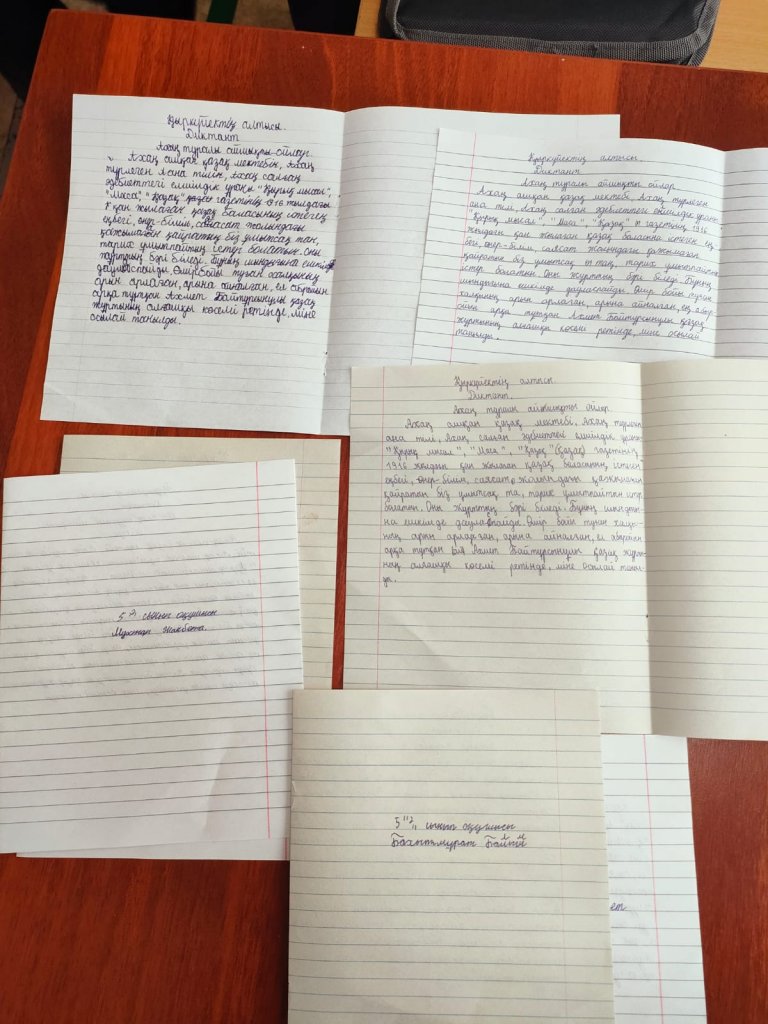 Қыркүйектің алтысы.
Диктант
Ахаң туралы айшықты ойлар.
Ахаң ашқан қазақ мектебін, Ахаң
түрлеген Ана тілін, Ахаң салған
әдебиеттегі елшілдік ұраны "Қырық мысал",
"Маса", "Қазақ" газетінің 1916 жылдағы
қан жылаған қазақ баласының істеген
еңбегі, өнер-білім, саясат жолындағы
қажымаған қайратын біз ұмытсақ та,
тарих ұмытпайтын істер болатын. Оны
жұрттың бәрі біледі. Бұның шындығына ешкімде
дауласпайды. Өмір бойы туған халқының
арын арлаған, арына айналған, ел абыройын
арқа тұтқан Ахмет Байтұрсынұлы қазақ
жұртының алғашқы көсемі ретінде, міне
осылай танылды.
Қыркүйектің алтысы.
Диктант
Ахаң туралы айшықты ойлар
Ахаң ашқан қазақ мектебі, Ахаң түрлеген
ана тілі, Ахаң салған әдебиеттегі елшілдік ұраны
"Қырық мысал", "Маса", "Қазақ" газетінің 1916
жылдан қан жылаған қазақ баласына істеген ең
бегі, өнер-білім, саясат жолындағы қажымаған
қайратын біз ұмытсақ та, тарих ұмытпайтын
істер болатын. Оны жұрттың бәрі біледі. Бұның
шындығына ешкімде дауласпайды. Өмір бойы туған
халқының арын арлаған, арына айналған, ел абыр
оын арқа тұтқан Ахмет Байтұрсынұлы қазақ
жұртының алғашқы көсемі ретінде, міне осылай
танылды.
Қыркүйектің алтысы
Диктант.
Ахаң туралы айшықты ойлар
Ахаң ашқан қазақ мектебі, Ахаң түрлеген
ана тілі, Ахаң салған әдебиеттегі елшілдік ұраны
"Қырық мысал", "Маса", "Қазақ" (қазақ) газетінің
1916 жылдың қан жылаған қазақ баласының істеген
еңбегі, өнер-білім, саясат, жолындағы қажымаған
қайратын біз ұмытсақ та, тарих ұмытпайтын істер
болатын. Оны жұрттың бәрі біледі. Бұның шынды
на ешкімде дауласпайды. Өмір бойы туған халқы-
ның арын арлаған, арына айналған, ел абыройын
арқа тұтқан Ахмет Байтұрсынұлы қазақ жұрты-
ның алғашқы көсемі ретінде, міне осылай таныл-
ды.
5 "2" сынып оқушысы
Жанбота.
5 "2" сынып оқушысы
Бахытмұрат
ет